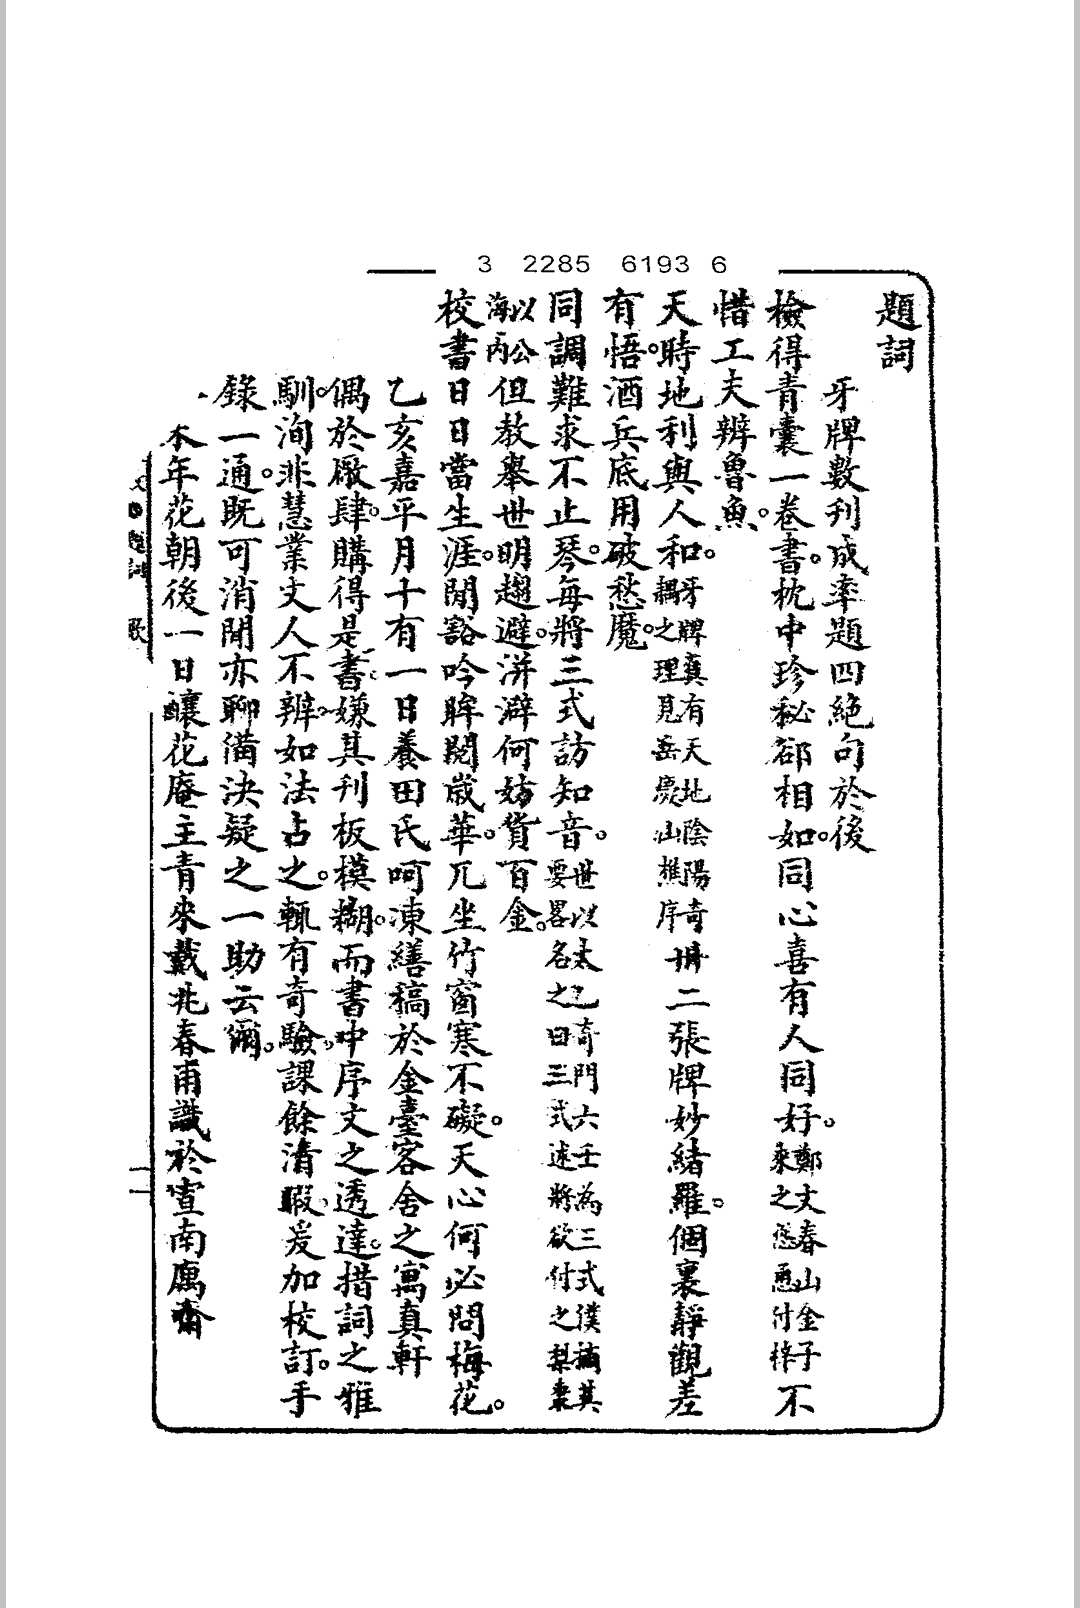 3 2285 6193 6
題詞
牙牌數刊成率題四絕句於後
檢得青囊一卷書。枕中珍秘邵相如。同心喜有人同好。鄭丈春山金子來之慫恿付梓不
惜工夫辨魯魚。
天時地利與人和。牙牌寘有天地陰陽奇耦之理見岳慶山樵序卅二張牌妙緒羅。個裏靜觀差
有悟。酒兵底用破愁魔。
同調難求不止琴。每將三式訪知音。世以太乙奇門六壬為三式僕摘其要畧名之曰三式述將欲付之梨棗
以公海內但教舉世明趨避。洴澼何妨貨百金。
校書日日當生涯。閒豁吟眸閱歲華。兀坐竹窗寒不礙。天心何必問梅花。
乙亥嘉平月十有一日養田氏呵凍繕稿於金臺客舍之寓真軒
偶於廠肆。購得是書。嫌其刊板模糊。而書中序文之透達。措詞之雅
馴。洵非慧業文人不辨。如法占之。輒有奇驗。課餘清暇。爰加校訂。手
錄一通。既可消閒亦聊備決疑之一助云爾。
本年花朝後一日釀花庵主青來戴兆春甫識於宣南寓齋
題詞
歌
二